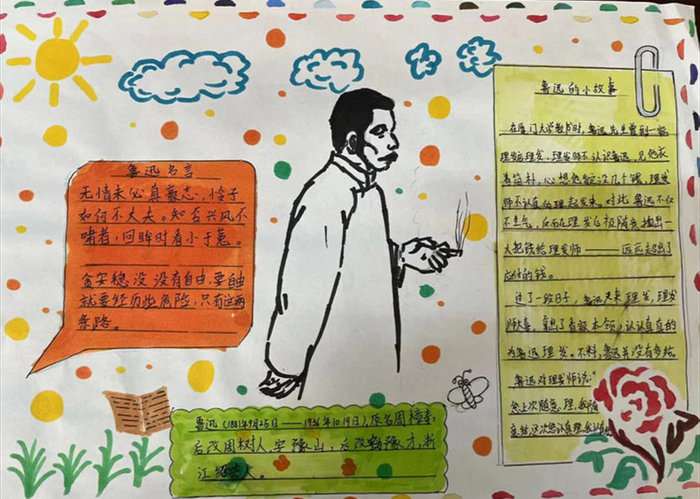 鲁迅名言
无情未必真豪杰,怜子
如何不丈夫。知否兴风不
啸者,回眸时看小于菟。
贪安稳 没 没有自由,要自由
就要经历些危险,只有这两
条路。
鲁迅的小故事
在厦门大学教书时,鲁迅先生曾到一
理发店理发,理发师不认识鲁迅,见他衣
着简朴,心想他 没几个钱,理发
师不认真 理起发来。对此鲁迅不仅
不生气,反而在理发后极随意 掏出一
大把钱给理发师 —— 远远超出了
应付的钱。
过了一段日子,鲁迅 来 理发,理发
师 ,拿出了看家本领,认认真真的
为鲁迅理发。不料,鲁迅并没有多给
鲁迅对理发师说:"
您上次随意,理,我
意给,这次您认真理,我
鲁迅(1881年9月25日——1936年10月19日),原名周樟寿,
后改周树人,字豫山,后改豫才,浙
江 人。